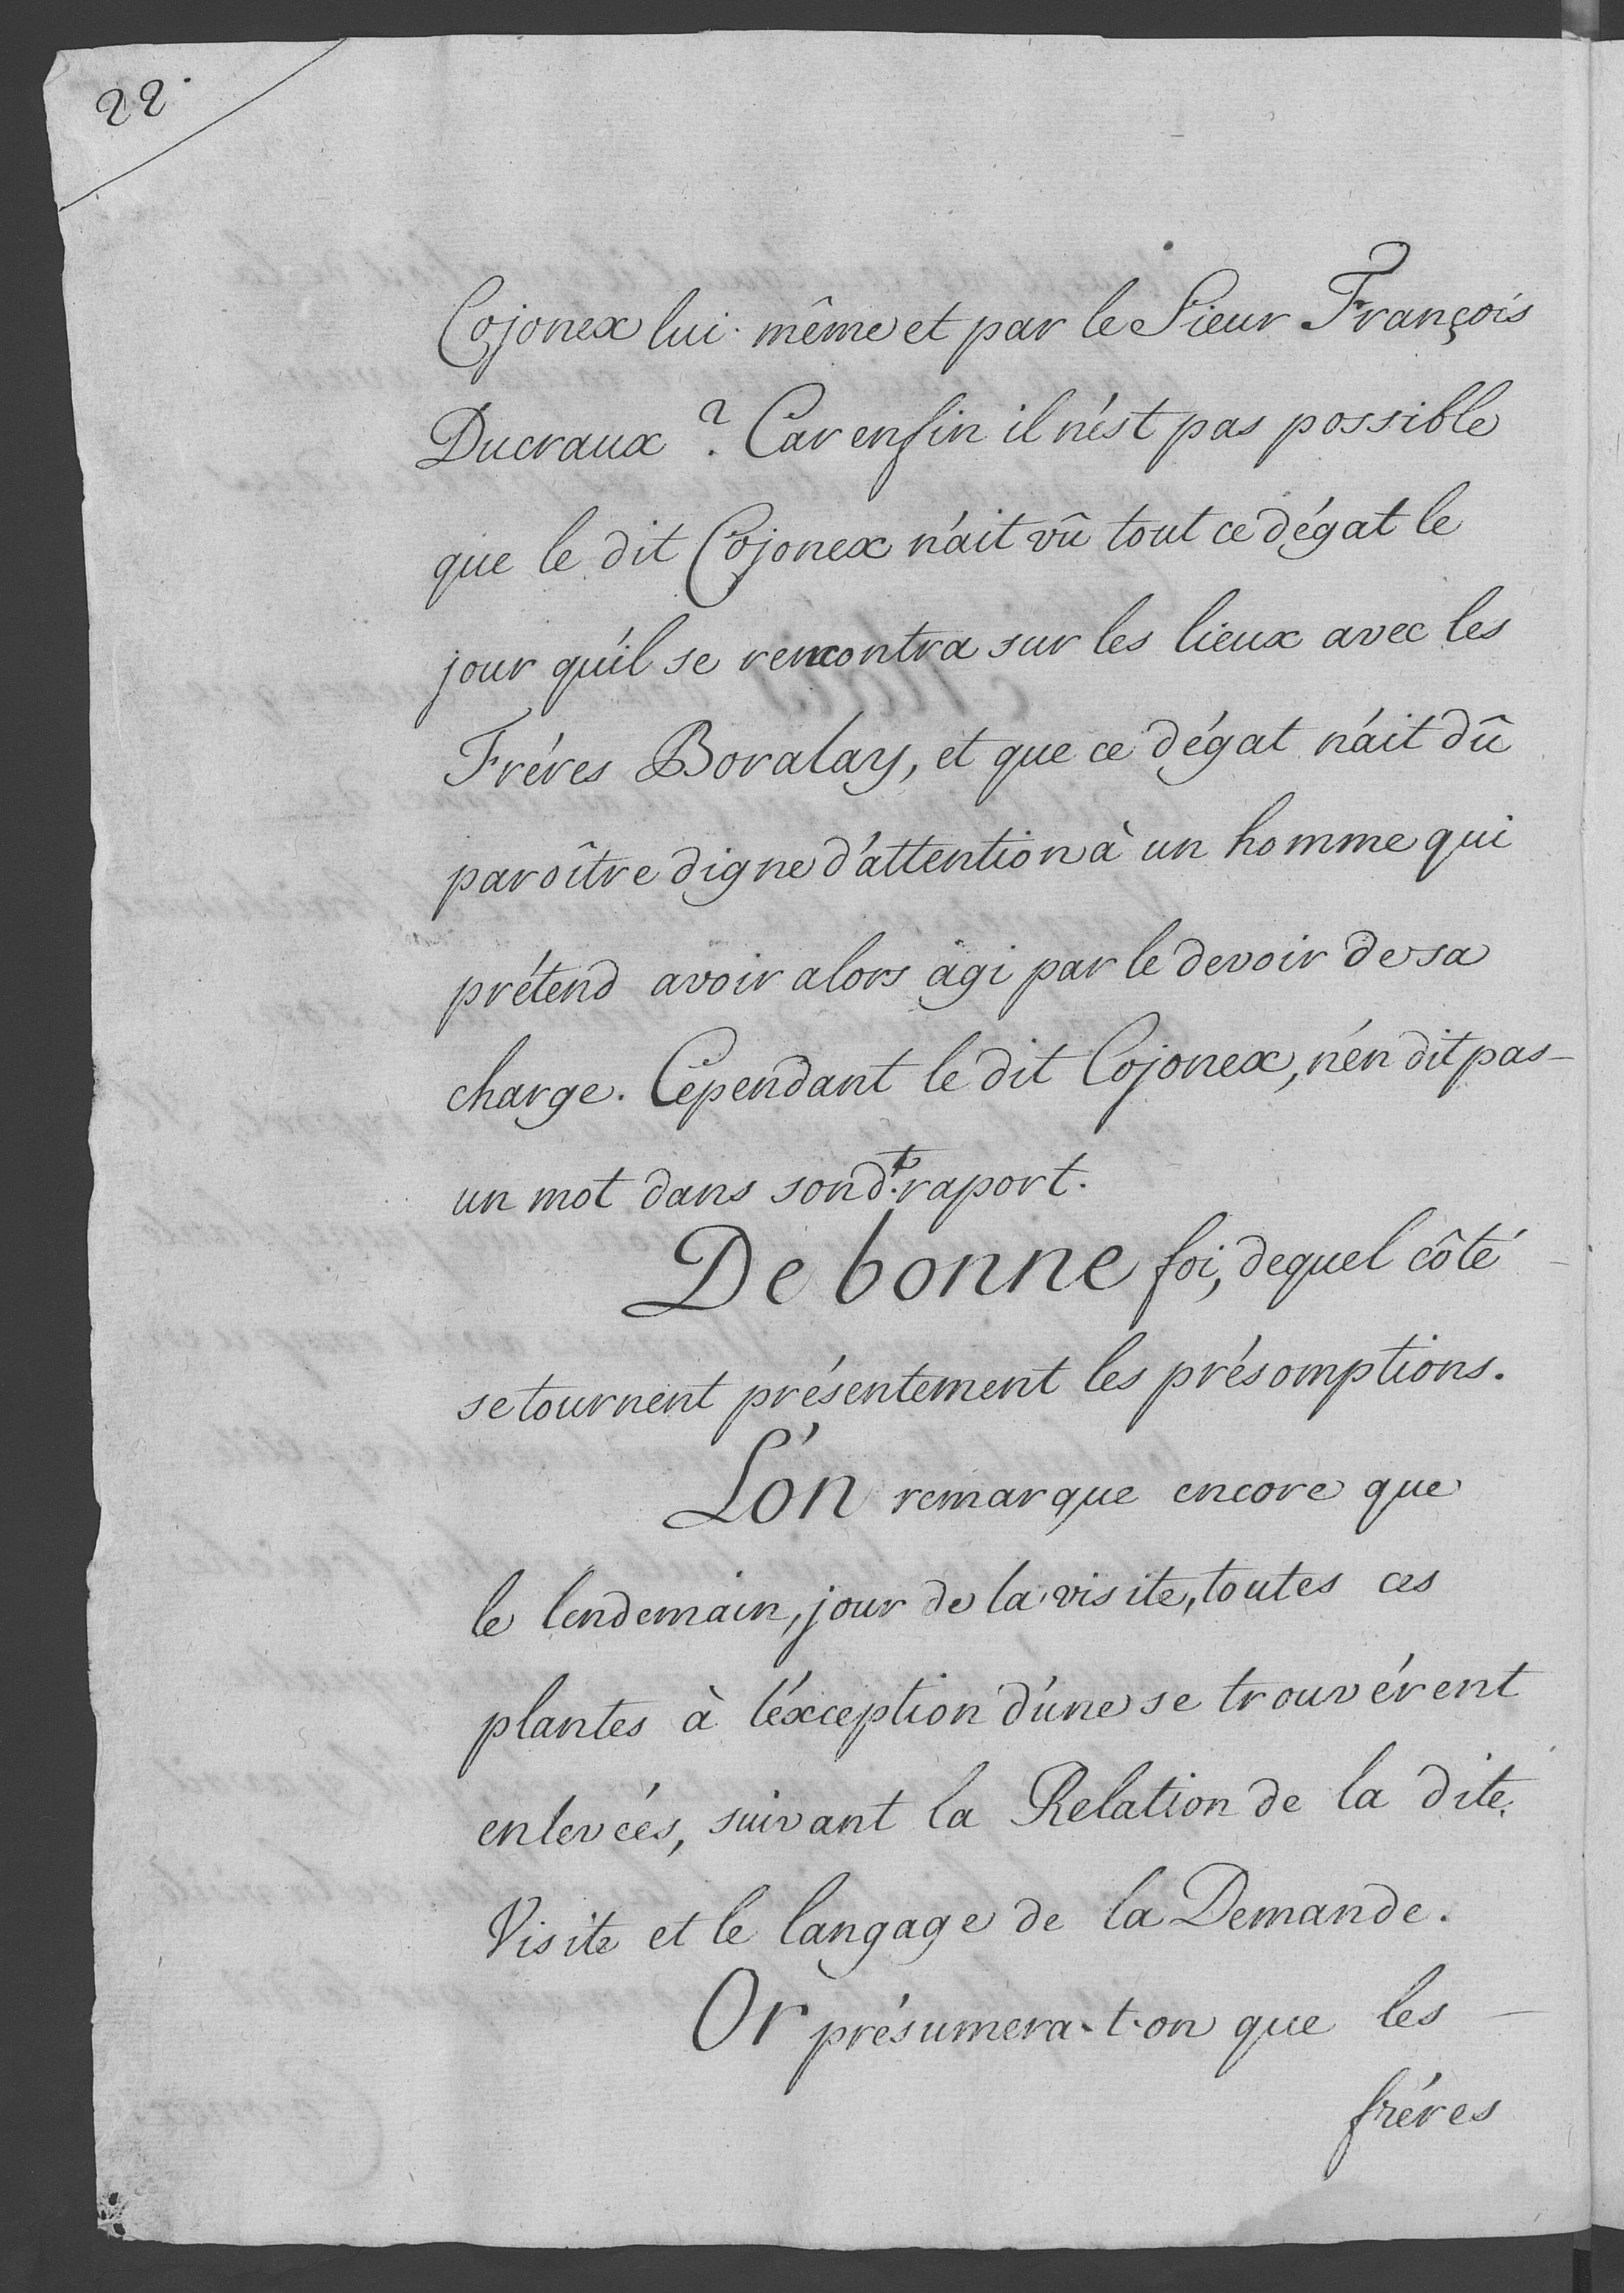 22.
Cojonex lui-même et par le Sieur François
Ducraux ? Car enfin il n'est pas possible
que le dit Cojonex n'ait vû tout ce dégat le
jour qu'il se rencontra sur les lieux avec les
Fréres Boralay, et que ce dégat n'ait dû
paroître digne d'attention à un homme qui
prétend avoir alors agi par le devoir de sa
charge. Cependant le dit Cojonex, n'en dit pas
un mot dans son d.t raport.
De bonne foi, de quel côté
se tournent présentement les présomptions.
L'on remarque encore que
le lendemain, jour de la visite, toutes ces
plantes à l'éxception d'une se trouvérent
enlevées, suivant la Relation de la dite
Visite et le langage de la Demande.
Or présumera-t-on que les
fréres